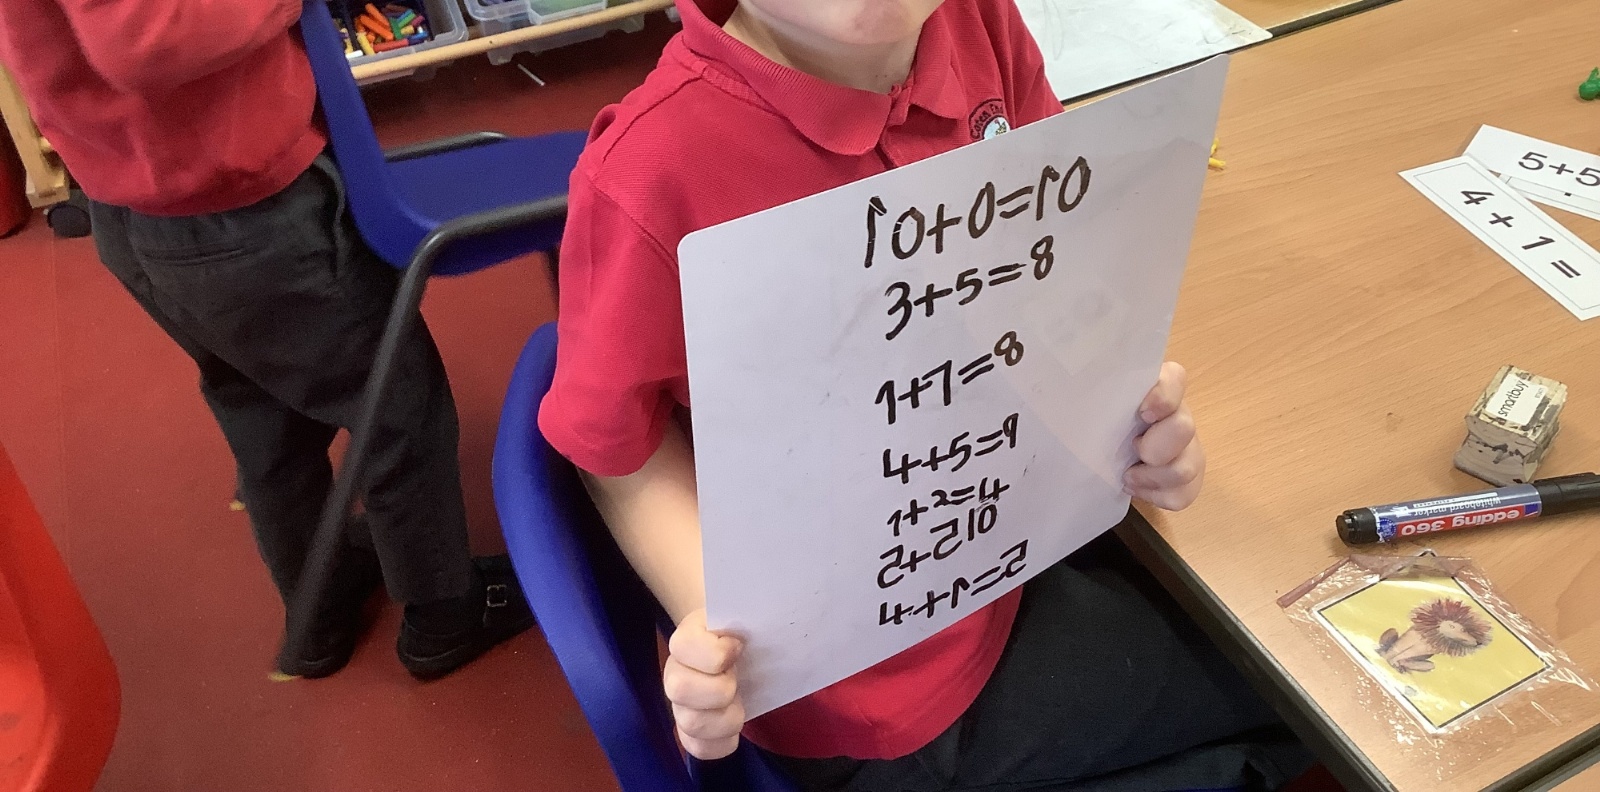 10+0=10
3+5=8
1+7=8
4+5=9
1+2=4
5+510
4+1=5
5+5
4+1=
smartbuy
edding 360
whiteboard marker